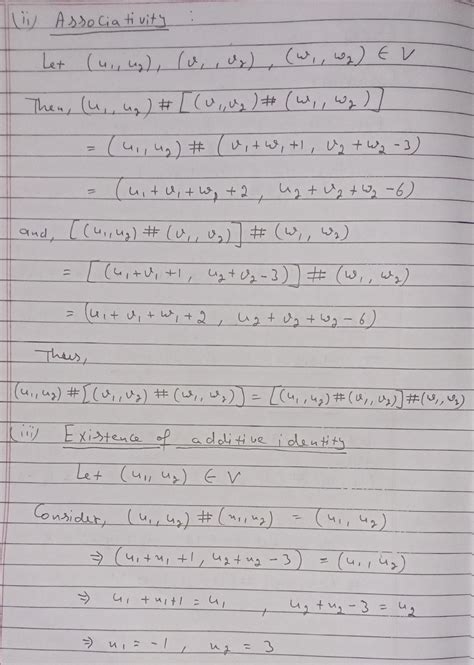 (ii) Associativity :
Let (u₁, u₂), (v₁, v₂), (w₁, w₂) ∈ V
Then, (u₁, u₂) # [(v₁, v₂) # (w₁, w₂)]
= (u₁, u₂) # (v₁+w₁+1, v₂+w₂-3)
= (u₁+v₁+w₁+2, u₂+v₂+w₂-6)
and, [(u₁, u₂) # (v₁, v₂)] # (w₁, w₂)
= [(u₁+v₁+1, u₂+v₂-3)] # (w₁, w₂)
= (u₁+v₁+w₁+2, u₂+v₂+w₂-6)
Thus,
(u₁, u₂) # [(v₁, v₂) # (w₁, w₂)] = [(u₁, u₂) # (v₁, v₂)] # (w₁, w₂)
(iii) Existence of additive identity
Let (u₁, u₂) ∈ V
Consider, (u₁, u₂) # (x₁, x₂) = (u₁, u₂)
⇒ (u₁+x₁+1, u₂+x₂-3) = (u₁, u₂)
⇒ u₁+x₁+1 = u₁ , u₂+x₂-3 = u₂
⇒ x₁ = -1, x₂ = 3